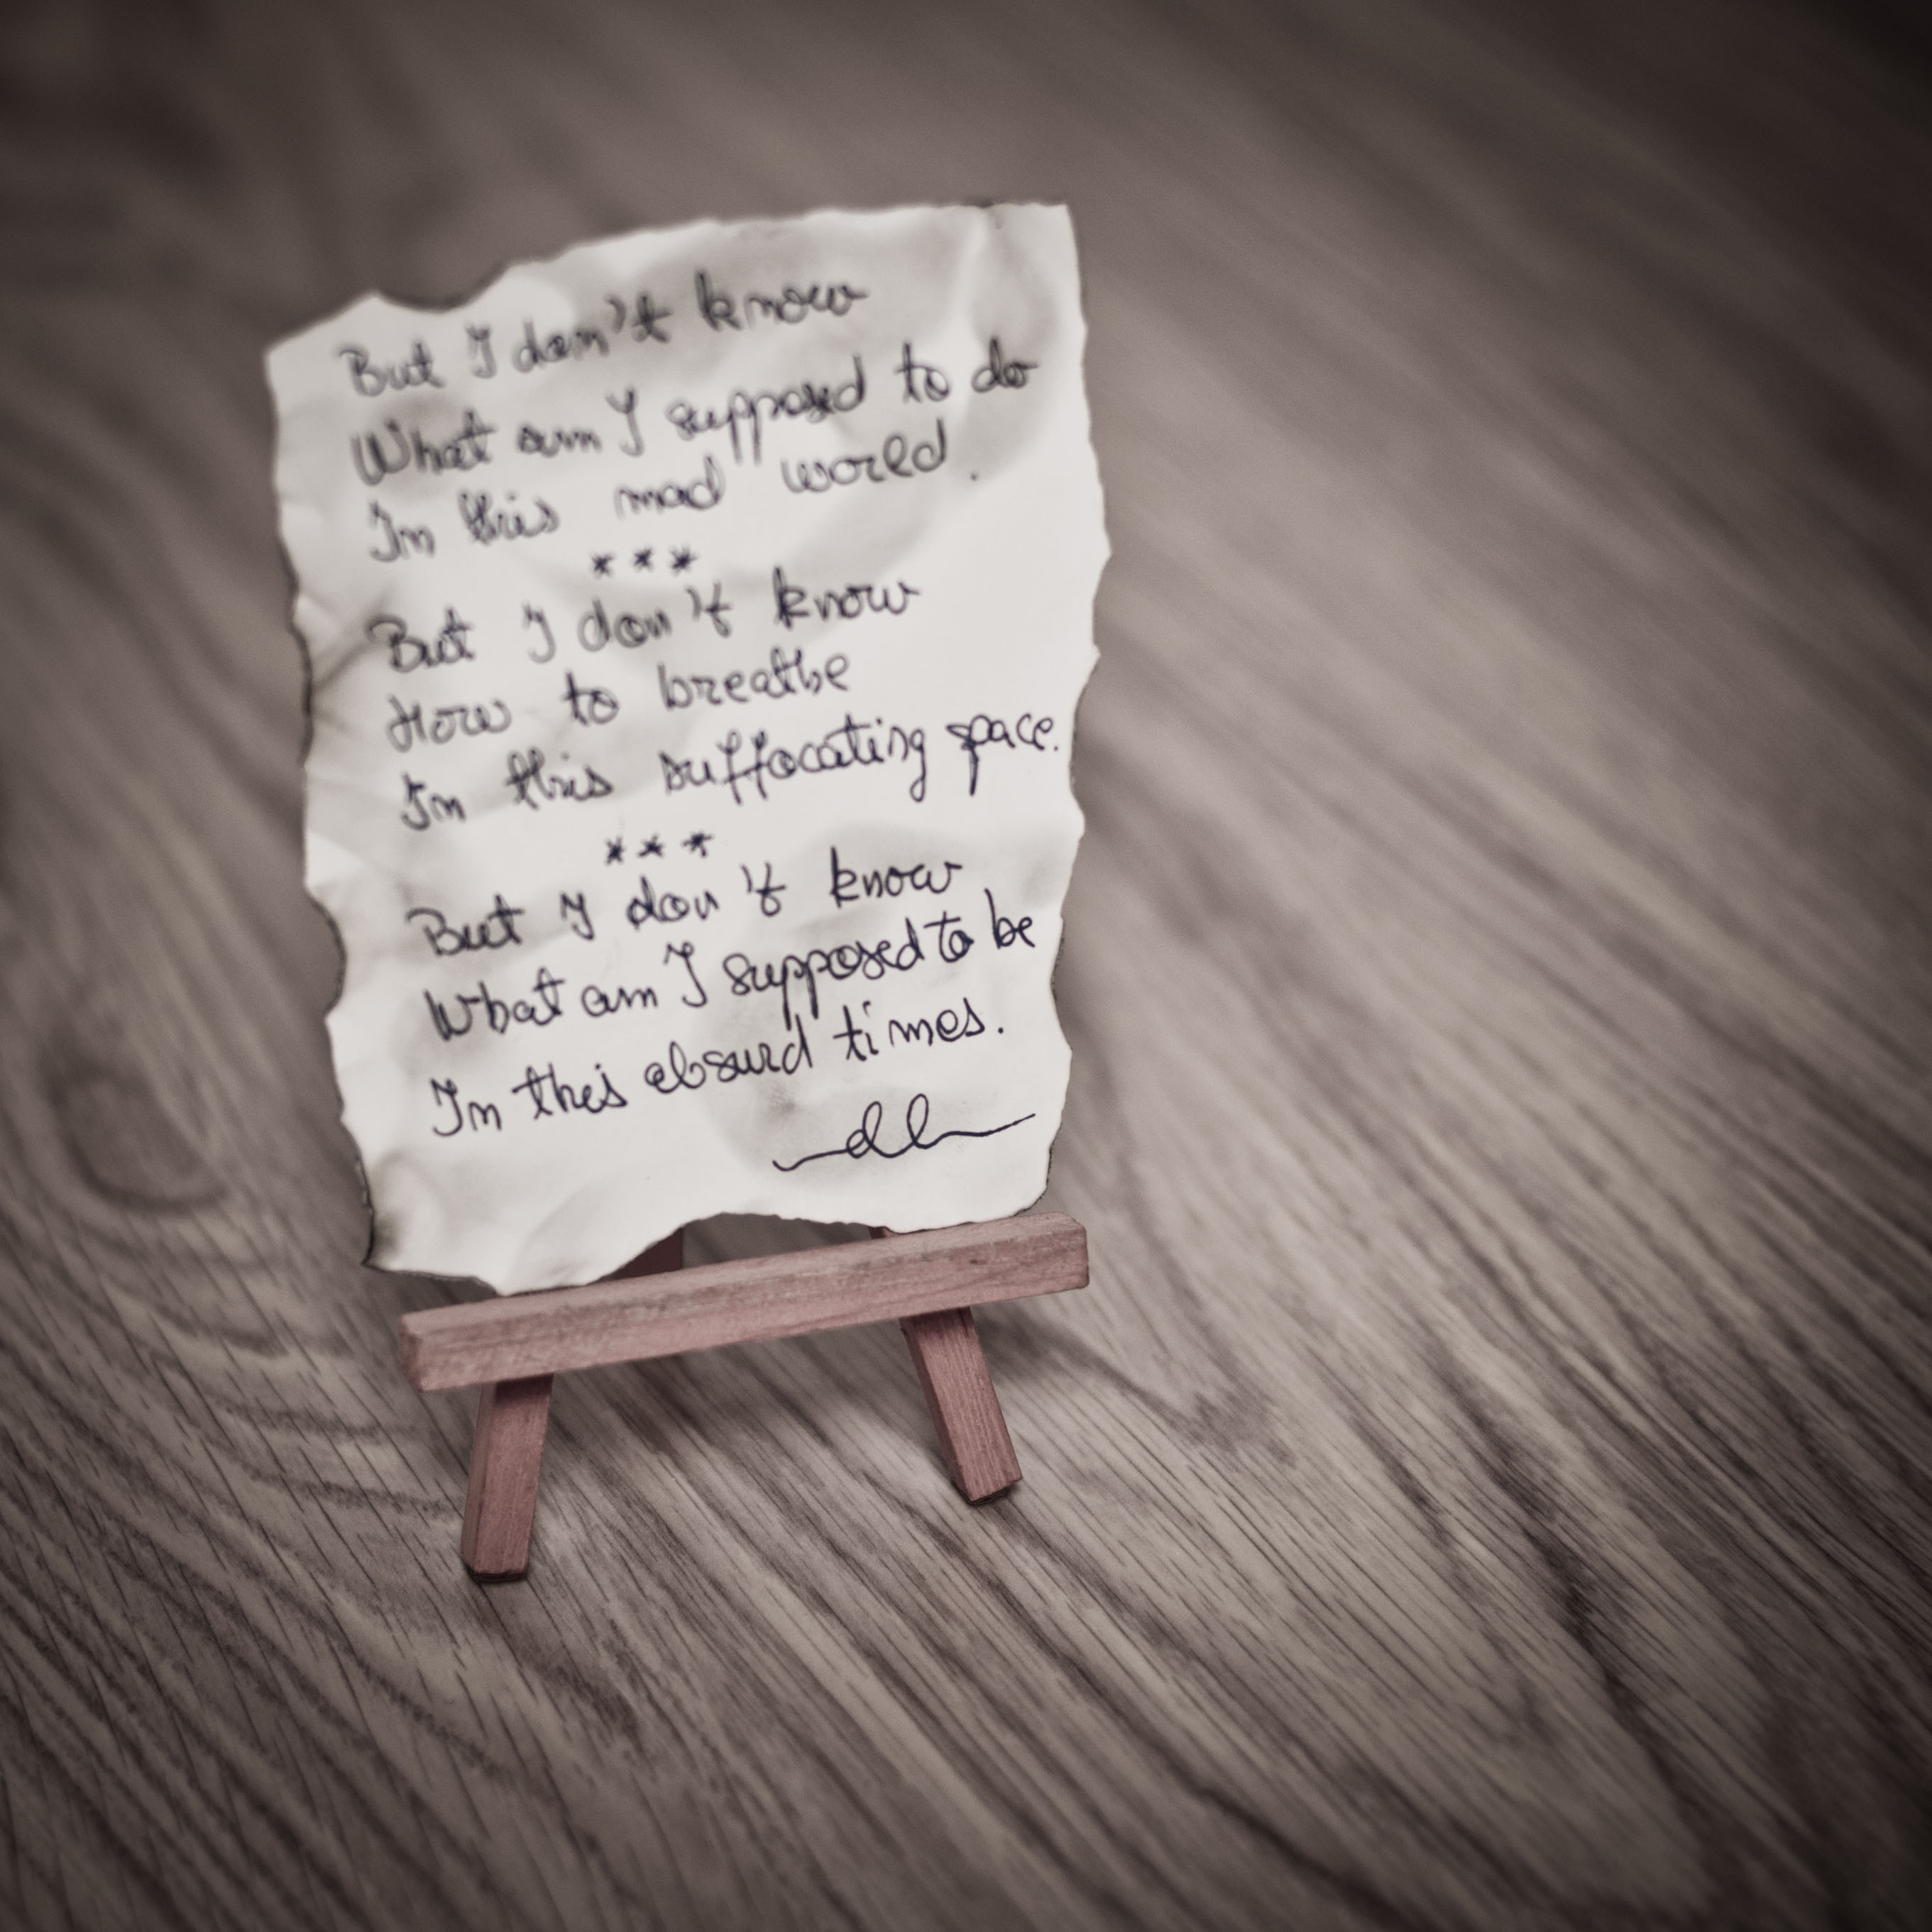 But I don't know
What am I supposed to do
In this mad world.
* * *
But I don't know
How to breathe
In this suffocating space.
* * *
But I don't know
What am I supposed to be
In this absurd times.